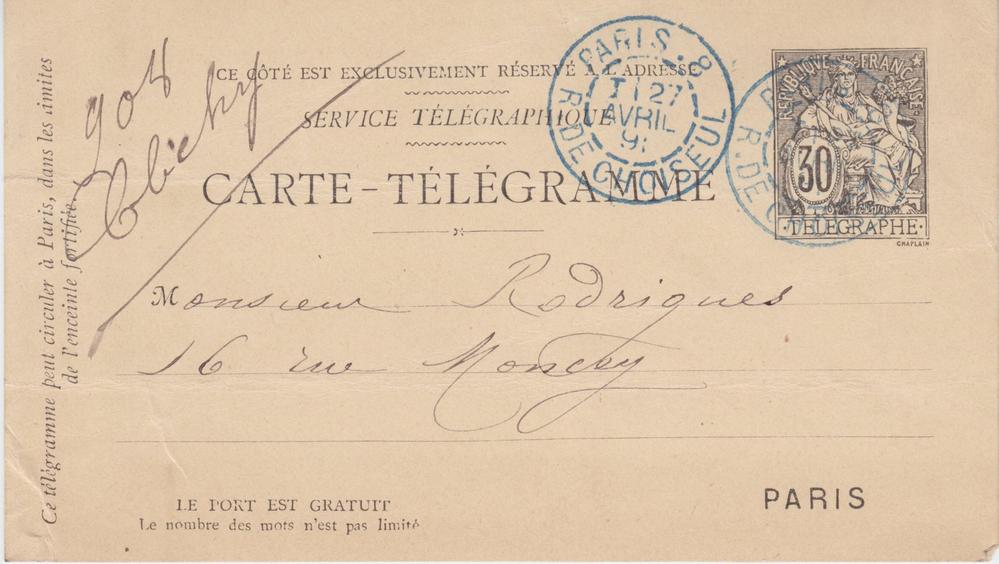 CE CÔTÉ EST EXCLUSIVEMENT RÉSERVÉ A L'ADRESSE
SERVICE TÉLÉGRAPHIQUE
CARTE-TÉLÉGRAMME
Monsieur Rodrigues
16 rue Moncey
PARIS
LE PORT EST GRATUIT
Le nombre des mots n'est pas limité
Ce télégramme peut circuler à Paris, dans les limites
de l'enceinte fortifiée.
Clichy
PARIS . 8
27
AVRIL
91
R. DE CHOISEUL
REPUBLIQUE FRANÇAISE
30
TÉLÉGRAPHE
CHAPLAIN
R. DE